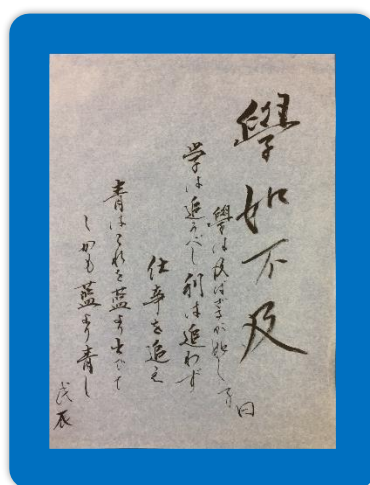 學如不及
學は及ばざるが如し 子曰
学は追うべし 利は追わず
仕事を追え
青はこれを藍より出でて
しかも藍より青し